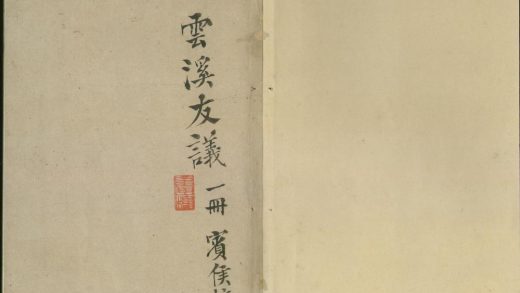 雲溪友議一冊賓侯